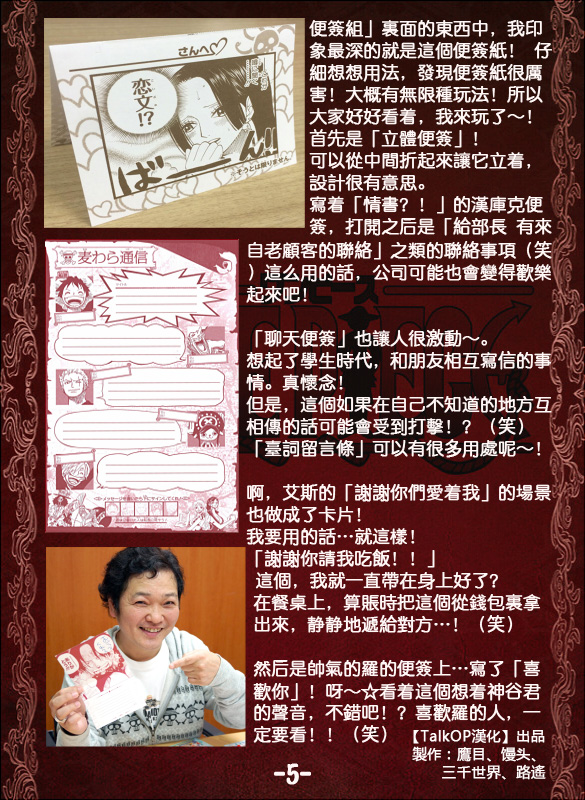 便簽組」裏面的東西中，我印
象最深的就是這個便簽紙！ 仔
細想想用法，發現便簽紙很厲
害！大概有無限種玩法！所以
大家好好看着，我來玩了～！
首先是「立體便簽」！
可以從中間折起來讓它立着，
設計很有意思。
寫着「情書？！」的漢庫克便
簽，打開之后是「給部長 有來
自老顧客的聯絡」之類的聯絡事項（笑
）這么用的話，公司可能也會變得歡樂
起來吧！
「聊天便簽」也讓人很激動～。
想起了學生時代，和朋友相互寫信的事
情。真懷念！
但是，這個如果在自己不知道的地方互
相傳的話可能會受到打擊！？（笑）
「臺詞留言條」可以有很多用處呢～！
啊，艾斯的「謝謝你們愛着我」的場景
也做成了卡片！
我要用的話…就這樣！
「謝謝你請我吃飯！！」
這個，我就一直帶在身上好了？
在餐桌上，算賬時把這個從錢包裏拿
出來，静静地遞給對方…！（笑）
然后是帥氣的羅的便簽上…寫了「喜
歡你」！呀～☆看着這個想着神谷君
的聲音，不錯吧！？喜歡羅的人，一
定要看！！（笑）
【TalkOP漢化】出品
製作：鷹目、馒头、
三千世界、路遙
-5-
さんへ♡
恋文!?
ばーん!!
※そうとは限りません
麦わら通信